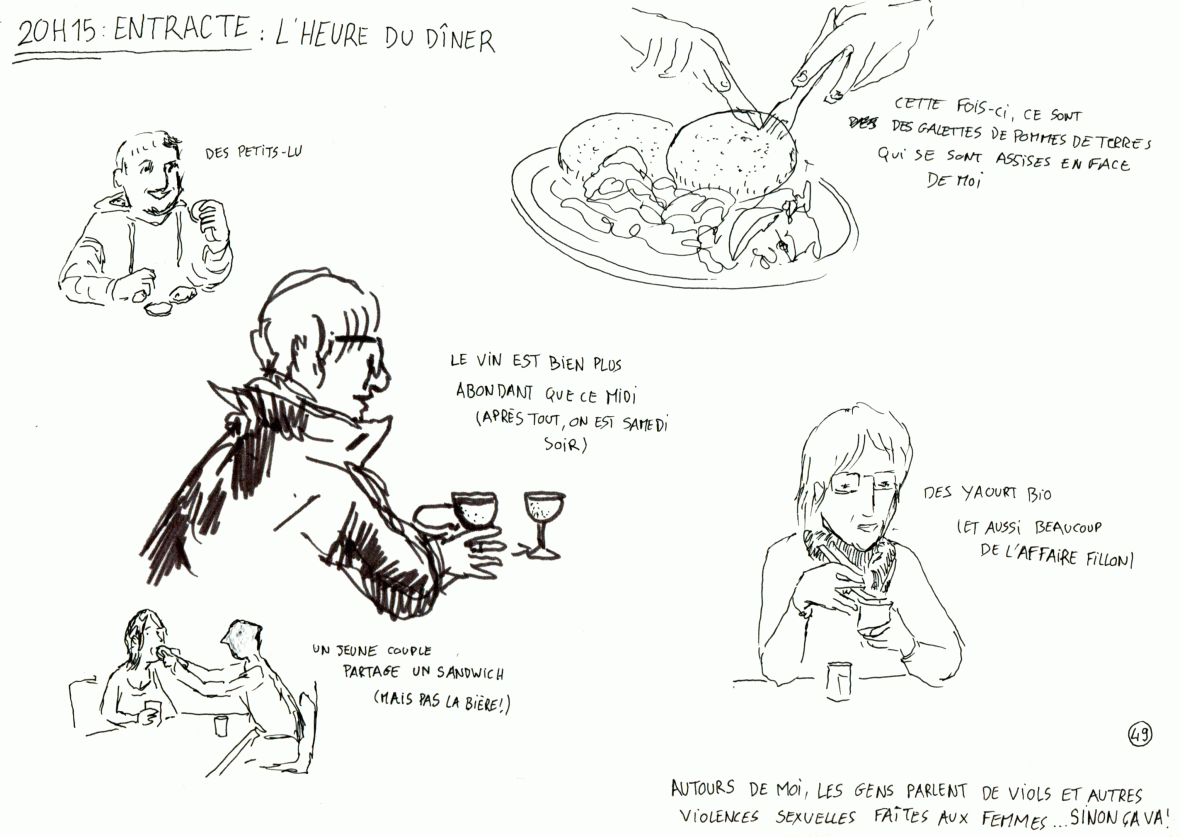 20H15 : ENTRACTE : L'HEURE DU DÎNER
DES PETITS-LU
CETTE FOIS-Ci, CE SONT
DES GALETTES DE POMMES DE TERRES
QUi SE SONT ASSISES EN FACE
DE MOi
LE VIN EST BIEN PLUS
ABONDANT QUE CE MIDI
(APRÈS TOUT, ON EST SAMEDI
SOIR)
DES YAOURT BIO
(ET AUSSI BEAUCOUP
DE L'AFFAIRE FILLON)
UN JEUNE COUPLE
PARTAGE UN SANDWICH
(MAIS PAS LA BIÈRE!)
49
AUTOURS DE MOI, LES GENS PARLENT DE VIOLS ET AUTRES
VIOLENCES SEXUELLES FAÎTES AUX FEMMES... SINON ÇA VA!